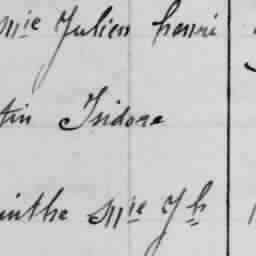 mie Julien henri
tin Isidore
inthe mie Jh